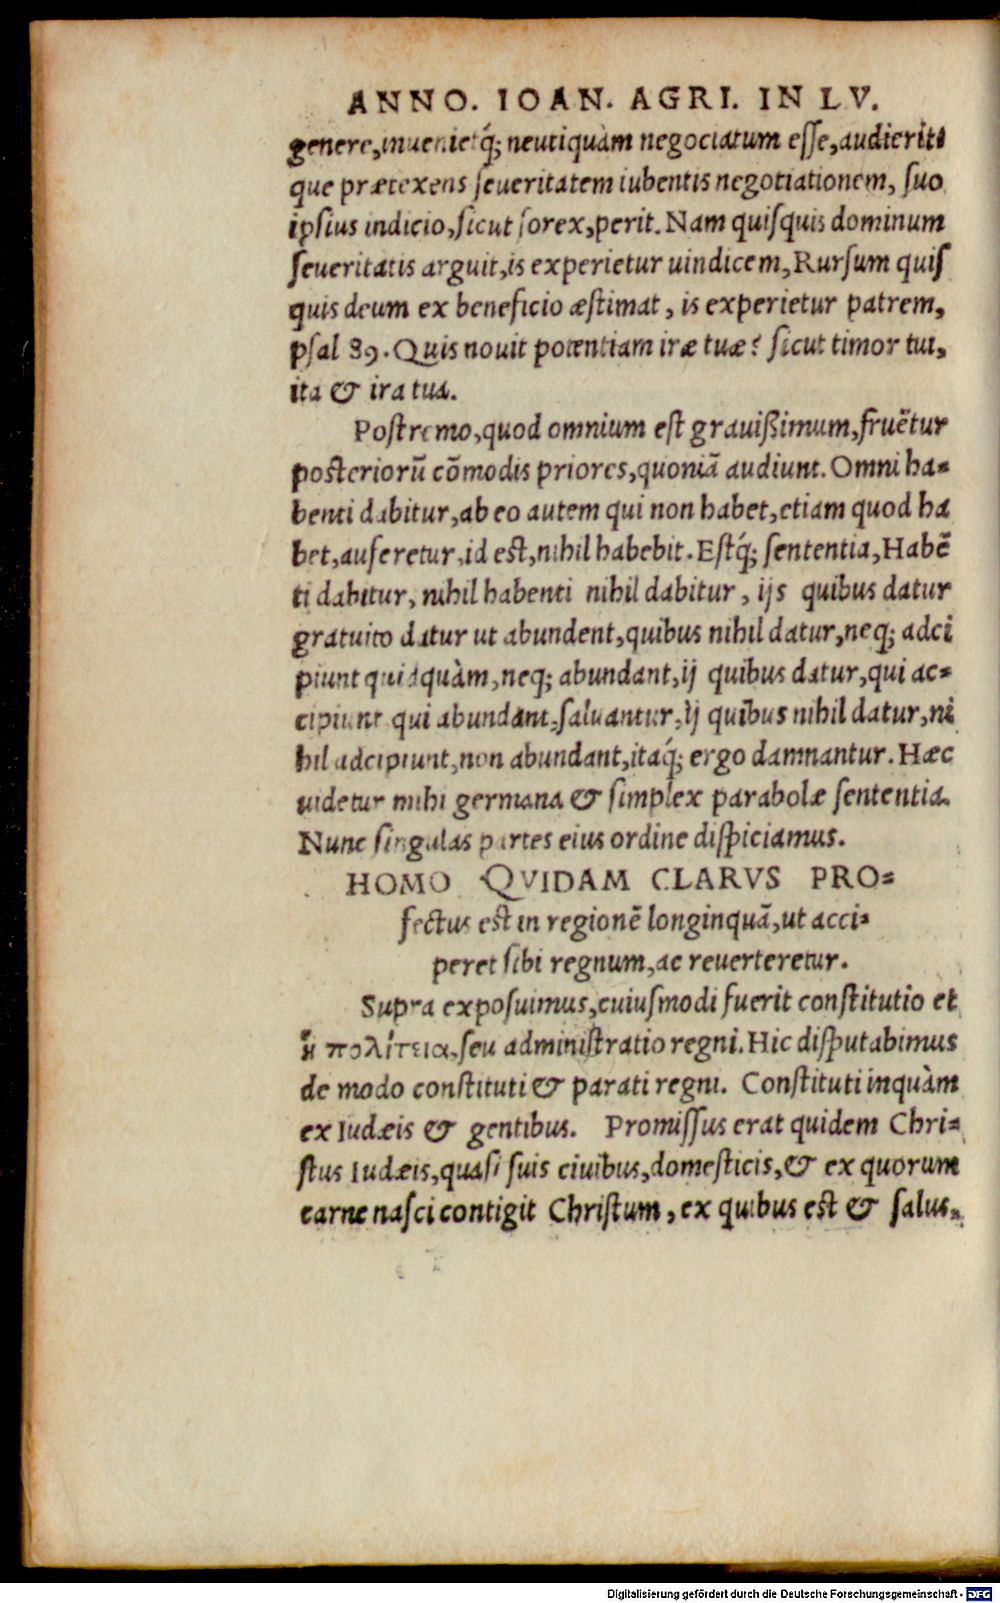 ANNO. IOAN. AGRI. IN LV.
genere, inuenietq́; neutiquàm negociatum esse, audierit-
que prætexens seueritatem iubentis negotiationem, suo
ipsius indicio, sicut sorex, perit. Nam quisquis dominum
seueritatis arguit, is experietur uindicem, Rursum quis
quis deum ex beneficio æstimat, is experietur patrem,
psal 89. Quis nouit potentiam iræ tuæ? sicut timor tui,
ita & ira tua.
Postremo, quod omnium est grauißimum, fruẽtur
posteriorũ cõmodis priores, quoniã audiunt. Omni ha-
benti dabitur, ab eo autem qui non habet, etiam quod ha
bet, auferetur, id est, nihil habebit. Estq́; sententia, Habẽ
ti dabitur, nihil habenti nihil dabitur, ijs quibus datur
gratuito datur ut abundent, quibus nihil datur, neq; adci
piunt quicquàm, neq; abundant, ij quibus datur, qui ac-
cipiunt qui abundant, saluantur, ij quibus nihil datur, ni
hil adcipiunt, non abundant, itaq́; ergo damnantur. Hæc
uidetur mihi germana & simplex parabolæ sententia.
Nunc singulas partes eius ordine dispiciamus.
HOMO QVIDAM CLARVS PRO-
fectus est in regionẽ longinquã, ut acci-
peret sibi regnum, ac reuerteretur.
Supra exposuimus, cuiusmodi fuerit constitutio et
ἡ πολίτεια, seu administratio regni. Hic disputabimus
de modo constituti & parati regni. Constituti inquàm
ex Iudæis & gentibus. Promissus erat quidem Chri-
stus Iudæis, quasi suis ciuibus, domesticis, & ex quorum
carne nasci contigit Christum, ex quibus est & salus.
Digitalisierung gefördert durch die Deutsche Forschungsgemeinschaft - DFG